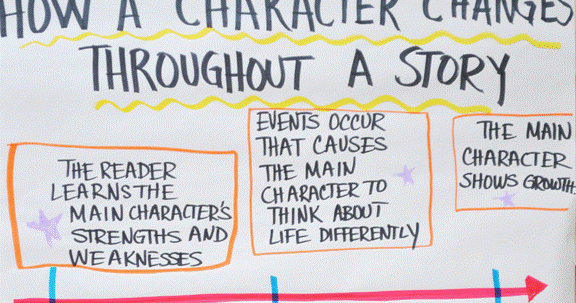 HOW A CHARACTER CHANGES
THROUGHOUT A STORY
THE READER
LEARNS THE
MAIN CHARACTER'S
STRENGTHS AND
WEAKNESSES
EVENTS OCCUR
THAT CAUSES
THE MAIN
CHARACTER TO
THINK ABOUT
LIFE DIFFERENTLY
THE MAIN
CHARACTER
SHOWS GROWTH